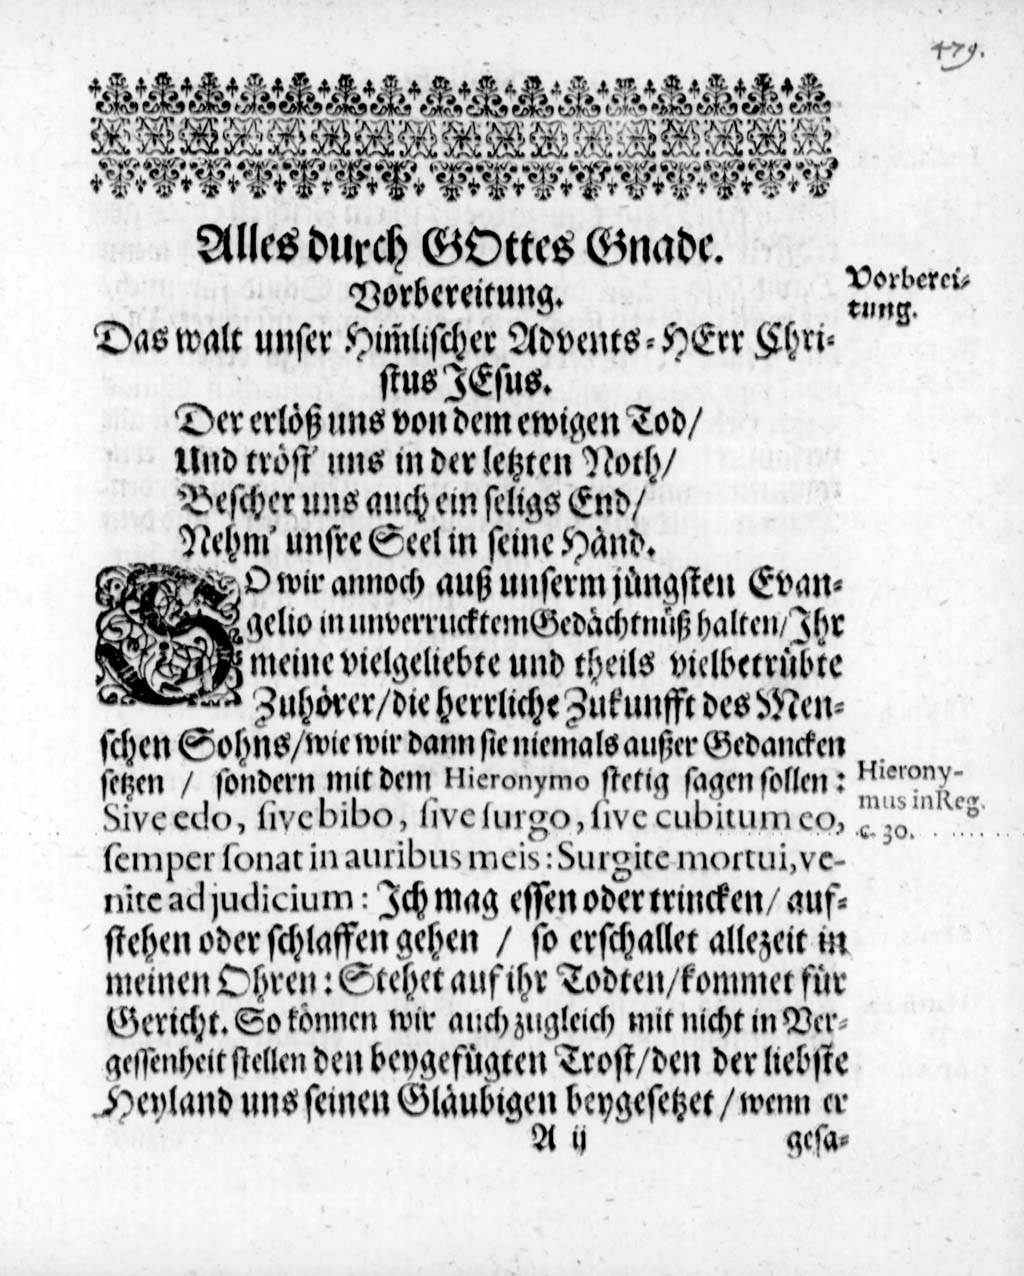 479.
Alles durch GOttes Gnade.
Vorbereitung.
Vorberei-
tung.
Das walt unser Him̃lischer Advents-HErr Chri-
stus JEsus.
Der erlöß uns von dem ewigen Tod/
Und tröst' uns in der letzten Noth/
Bescher uns auch ein seligs End/
Nehm' unsre Seel in seine Händ.
SO wir annoch auß unserm jüngsten Evan-
gelio in unverrucktem Gedächtnüß halten/Ihr
meine vielgeliebte und theils vielbetrübte
Zuhörer/die herrliche Zukunfft des Men-
schen Sohns/wie wir dann sie niemals außer Gedancken
setzen / sondern mit dem Hieronymo stetig sagen sollen:
Hierony-
mus in Reg.
c. 30.
Sive edo, sive bibo, sive surgo, sive cubitum eo,
semper sonat in auribus meis: Surgite mortui, ve-
nite ad judicium: Ich mag essen oder trincken/ auf-
stehen oder schlaffen gehen / so erschallet allezeit in
meinen Ohren: Stehet auf ihr Todten/kommet für
Gericht. So können wir auch zugleich mit nicht in Ver-
gessenheit stellen den beygefügten Trost/den der liebste
Heyland uns seinen Gläubigen beygesetzet / wenn er
A ij
gesa-